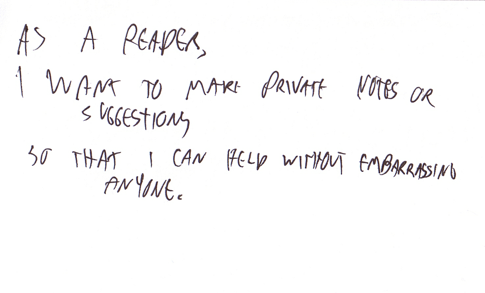 AS A READER,
I WANT TO MAKE PRIVATE NOTES OR
SUGGESTIONS
SO THAT I CAN HELP WITHOUT EMBARRASSING
ANYONE.